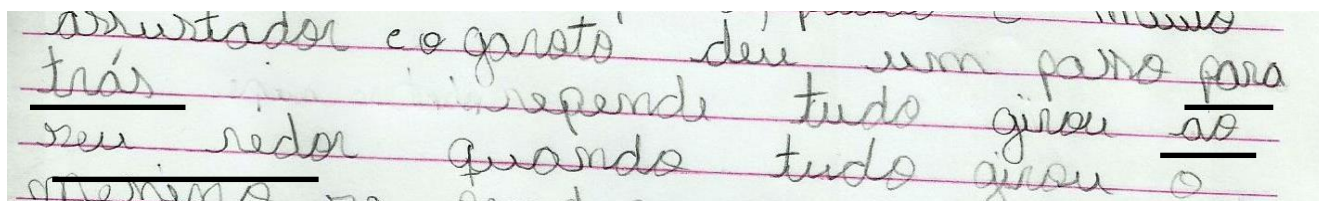 assustador e o garoto deu um passo para
trás repende tudo girou ao
seu redor quando tudo girou o
menino